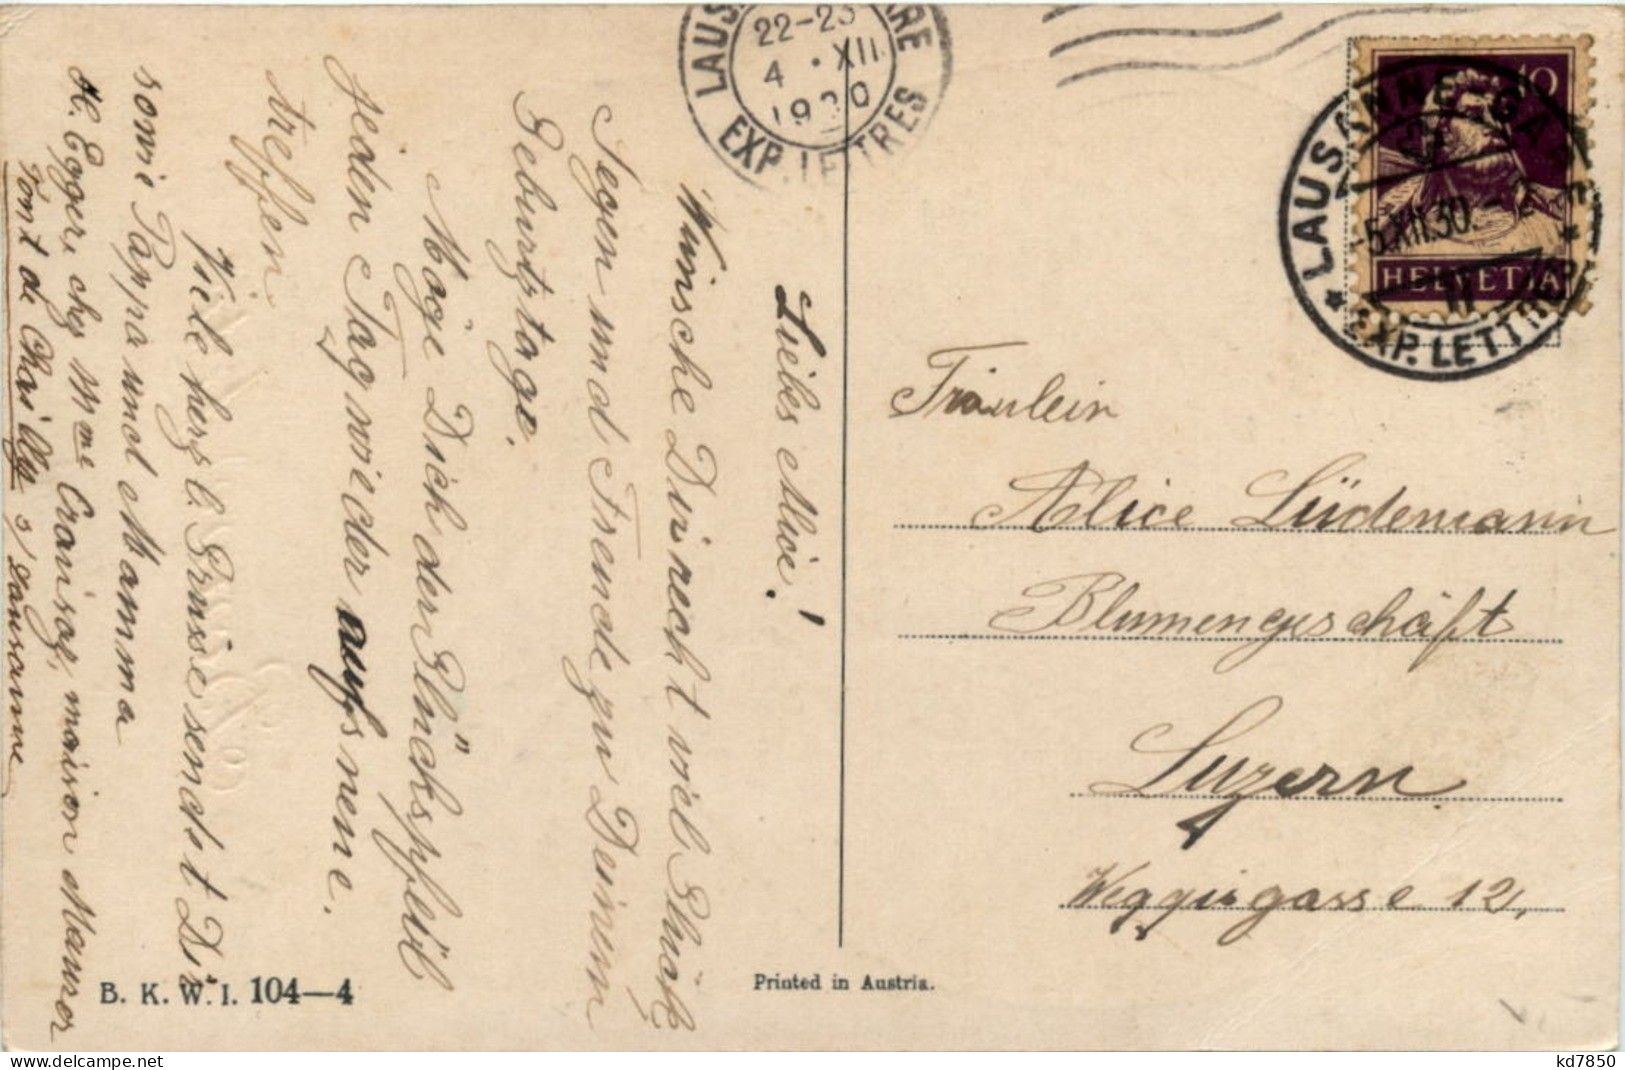 Liebes Alice!
Wünsche Dir recht viel Glück
Segen und Freude zu Deinem
Geburtstage.
Möge Dich der "Glückspfeil
jeden Tag wieder aufs neue
treffen.
Viele herzl. Grüsse sendet Dir
sowie Pappa und Mamma
H. Egger, chez Mme Craisaz, maison Maurer
Pont de Chailly s/ Lausanne
LAUSANNE GARE
22-23
4 • XII
1930
EXP. LETTRES
10
HELVETIA
LAUSANNE-GARE
-5.XII.30.-
EXP. LETTRES
Fräulein
Alice Lüdemann
Blumengeschäft
Luzern
Weggisgasse 12.
B. K. W. I. 104—4
Printed in Austria.
kd7850